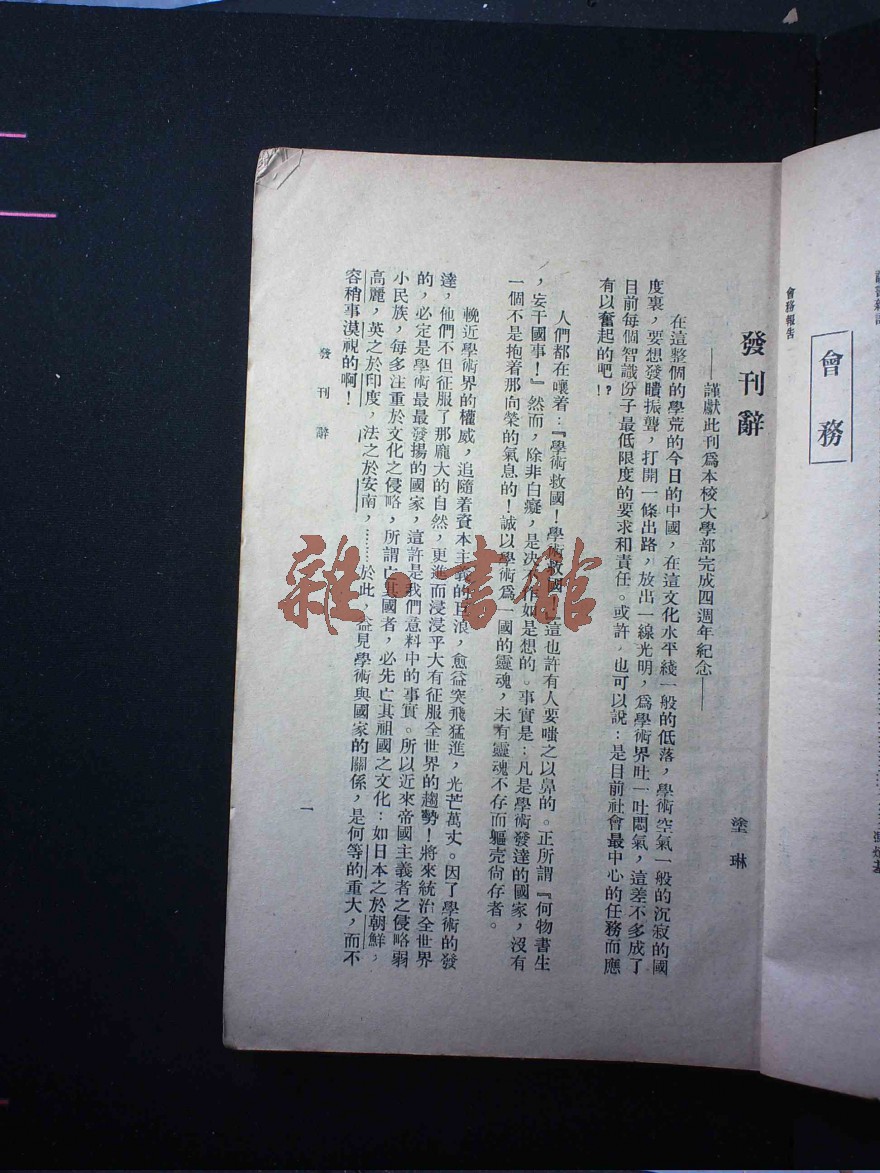 會務
會務報告
發刊辭
塗琳
——謹獻此刊爲本校大學部完成四週年紀念——
在這整個的學荒的今日的中國，在這文化水平綫一般的低落，學術空氣一般的沉寂的國
度裏，要想發聵振聾，打開一條出路，放出一線光明，爲學術界吐一吐悶氣，這差不多成了
目前每個智識份子最低限度的要求和責任。或許，也可以說：是目前社會最中心的任務而應
有以奮起的吧！？
人們都在嚷着：『學術救國！學術救國！』這也許有人要嗤之以鼻的。正所謂『何物書生
，妄干國事！』然而，除非白癡，是决不作如是想的。事實是：凡是學術發達的國家，沒有
一個不是抱着那向榮的氣息的！誠以學術爲一國的靈魂，未有靈魂不存而軀壳尙存者。
輓近學術界的權威，追隨着資本主義的巨浪，愈益突飛猛進，光芒萬丈。因了學術的發
達，他們不但征服了那龐大的自然，更進而浸浸乎大有征服全世界的趨勢！將來統治全世界
的，必定是學術最最發揚的國家，這許是我們意料中的事實。所以近來帝國主義者之侵略弱
小民族，每多注重於文化之侵略，所謂亡其國者，必先亡其祖國之文化：如日本之於朝鮮，
高麗，英之於印度，法之於安南，……於此，益見學術與國家的關係，是何等的重大，而不
容稍事漠視的啊！
發刊辭
一
雜·書館